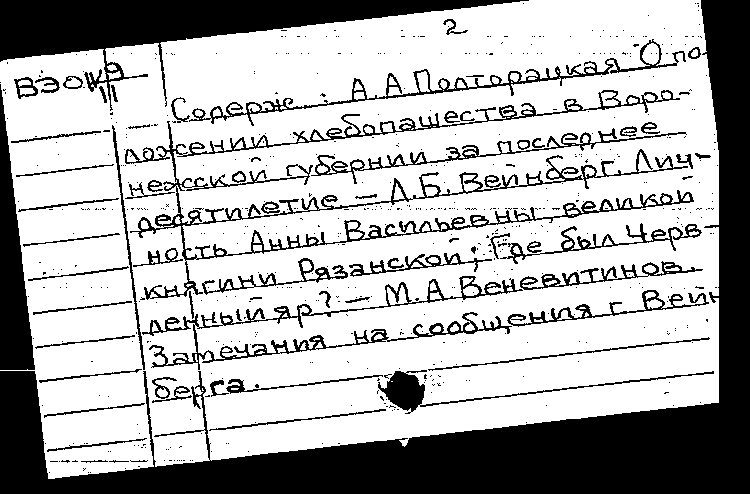 2
ВЭОК 9
11
Содерж.: А.А Полторацкая О по-
ложении хлебопашества в Воро-
нежской губернии за последнее
десятилетие. — Л.Б. Вейнберг. Лич-
ность Анны Васильевны, великой
княгини Рязанской; Где был Черв-
ленный яр? — М.А. Веневитинов.
Замечания на сообщения г. Вейн
берга.